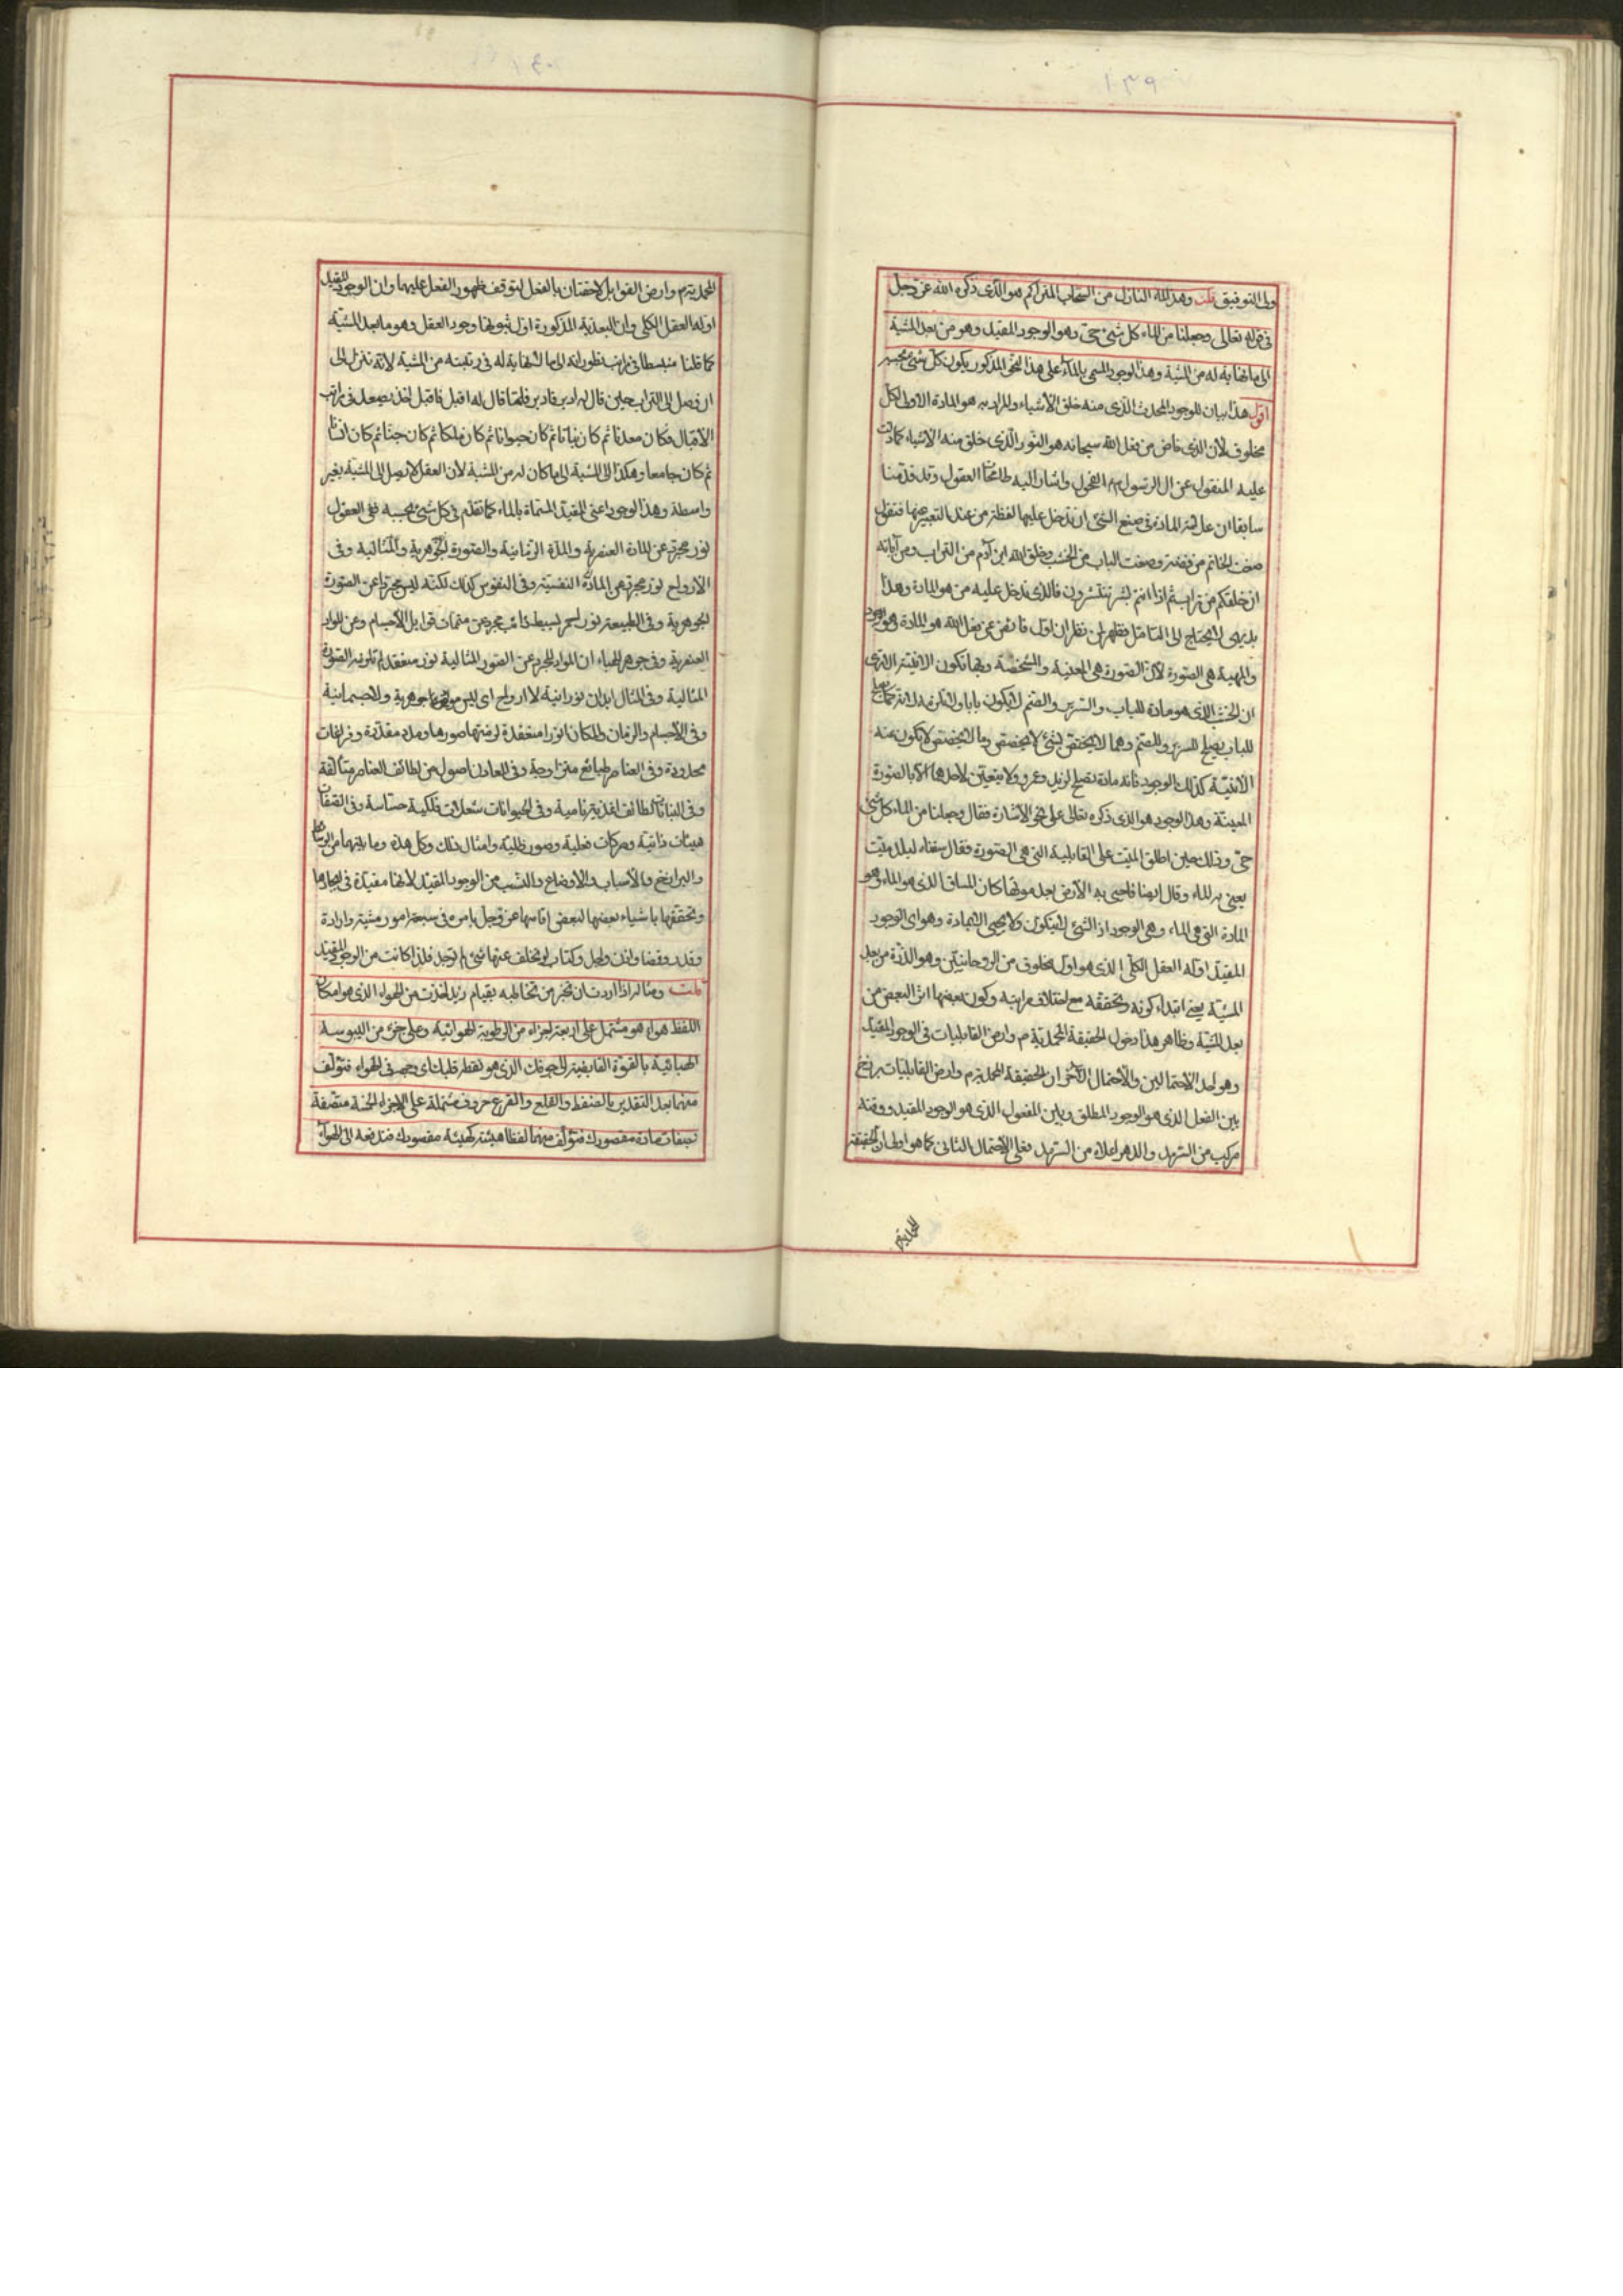 ١٣٩
ولى التوفيق قلت وهذا الماء النازل من السحاب المتراكم هو الذى ذكره الله عز وجل
فى قوله تعالى وجعلنا من الماء كل شئ حى وهو الوجود المقيد وهو من بعد المشية
الى ما لا نهاية له من المشية وهذا الوجود المسمى بالماء على هذا النحو المذكور يكون كل شئ بحسبه
اقول هذا بيان للوجود المحدث الذى منه خلق الأشياء والمراد به هو المادة الاولى لكل
مخلوق لأن الذى فاض من فعل الله سبحانه هو النور الذى خلق منه الأشياء كما دلت
عليه المنقول عن ال الرسول واشار اليه العقول وقد قدمنا
سابقا ان علامة المادة فى صنع الشئ ان تدخل عليها لفظة من عند التعبير عنها فتقول
صغت الخاتم من فضة وصنعت الباب من الخشب وخلق الله ابن آدم من التراب ومن آياته
ان خلقكم من تراب ثم اذا انتم بشر تنتشرون فالذى تدخل عليه من هو المادة وهذا
بديهى لا يحتاج الى التأمل فظهر لمن نظر ان اول فائض عن فعل الله هو المادة وهو الوجود
والمهية هى الصورة لأن الصورة هى المعينة والمشخصة وبها تكون الانية الا ترى
ان الخشب الذى هو مادة للباب والسرير والصنم لا يكون بابا
للباب يصلح للسرير والصنم وهما لا يختص بشئ لا يختص وما لا يختص لا تكون عنه
الانية كذلك الوجود فانه مادة تصلح لزيد وعمرو ولا يتعين لاحدهما الا بالصورة
المعينة وهذا الوجود هو الذى ذكره تعالى على نحو الاشارة فقال وجعلنا من الماء كل شئ
حى وذلك حين اطلق الميت على القابلية التى هى الصورة فقال سقناه لبلد ميت
يعنى به الماء وقال ايضا فاحيى به الأرض بعد موتها كان المساق الذى هو الماء هو
المادة التى هى الماء وهى الوجود اذ الشئ لا يتكون ولا يحيى الا بمادة وهو اى الوجود
المقيد اوله العقل الكلى الذى هو اول مخلوق من الروحانيين وهو الذرة من بعد
المشية يعنى ابتداء كونه وتحققه مع اختلاف مراتبه وكون بعضها اثر البعض من
بعد المشية وظاهر هذا دخول الحقيقة المحمدية م وارض القابليات فى الوجود المقيد
وهو احد الاحتمالين والأحتمال الآخر ان الحقيقة المحمدية م وارض القابليات برزخ
بين الفعل الذى هو الوجود المطلق وبين المفعول الذى هو الوجود المقيد ووقته
مركب من السرمد والدهر اعلاه من السرمد فعلى الأحتمال الثانى كما هو اولى ان الحقيقة
المحمدية
١٤٠
المحمدية م وارض القوابل لاحقتان بالفعل لتوقف ظهور الفعل عليهما وان الوجود المقيد
اوله العقل الكلى وان البعدية المذكورة اول ثبوتها وجود العقل وهو ما بعد المشية
كما قلنا منبسطا فى مراتب تطوراته الى ما لا نهاية له فى رتبته من المشية لانه تنزل الى
ان وصل الى التراب حين قال له ادبر فادبر فلما قال له اقبل فاقبل اخذ يصعد فى مراتب
الأقبال فكان معدنا ثم كان نباتا ثم كان حيوانا ثم كان ملكا ثم كان جنا ثم كان انسانا
ثم كان جامعا وهكذا الى المشية الى ما كان له من المشية لأن العقل لا يصل الى المشية بغير
واسطة وهذا الوجود اعنى المقيد المسماة بالماء كما تقدم فى كل شئ بحسبه ففى العقول
نور مجرد عن المادة العنصرية والمدة الزمانية والصورة الجوهرية والمثالية وفى
الأرواح نور مجرد عن المادة النفسية وفى النفوس كذلك لكنه ليس مجردا عن الصورة
الجوهرية وفى الطبيعة نور احمر بسيط ذائب مجرد عن متممات قوابل الأجسام وعن المواد
العنصرية وفى جوهر الهباء ان المواد المجردة عن الصور المثالية نور منعقد لم تلزمه الصورة
المثالية وفى المثال ابدان نورانية لا ارواح اى ليس جوهرية ولا جسمانية
وفى الأجسام والزمان والمكان انوار منعقدة لزمتها صورها ومدد مقدرة وفراغات
محدودة وفى العناصر طبايع متزاوجة وفى المعادن اصول من لطائف العناصر متألفة
وفى النباتات لطائف اغذية نامية وفى الحيوانات شعلات فلكية حساسة وفى الصفات
هيئات ذاتية وحركات فعلية وصور ظلية وامثال ذلك وكل هذه وما بينهما من
والبرازخ والأسباب والأوضاع والنسب من الوجود المقيد لأنها مقيدة فى ايجادها
وتحققها باشياء بعضها لبعض اقامها عز وجل بامره فى سبعة امور مشية وارادة
وقدر وقضا واذن واجل وكتاب لو تخلف عنها شئ لم توجد فلذا كانت من الوجود المقيد
قلت ومثاله اذا اردت ان تخبر من تخاطبه بقيام زيد اخذت من الهواء الذى هو امكان
اللفظ هواء هو مشتمل على اربعة اجزاء من الرطوبة الهوائية وعلى جزء من اليبوسة
الهبائية بالقوة القابضة الى جوفك الذى هو نقطة قلبك اى وجهه فى الهواء فتؤلف
منهما بعد التقدير بالضغط والقلع والقرع حروف مشتملة على الاجزاء الخمسة متصفة
بصفات مادة مقصودك فتؤلف منهما لفظا هيئته كهيئة مقصودك فتدفعه الى الهواء